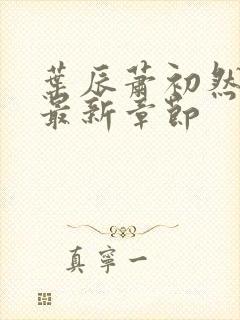 葉辰蕭初然
最新章節
真寧一